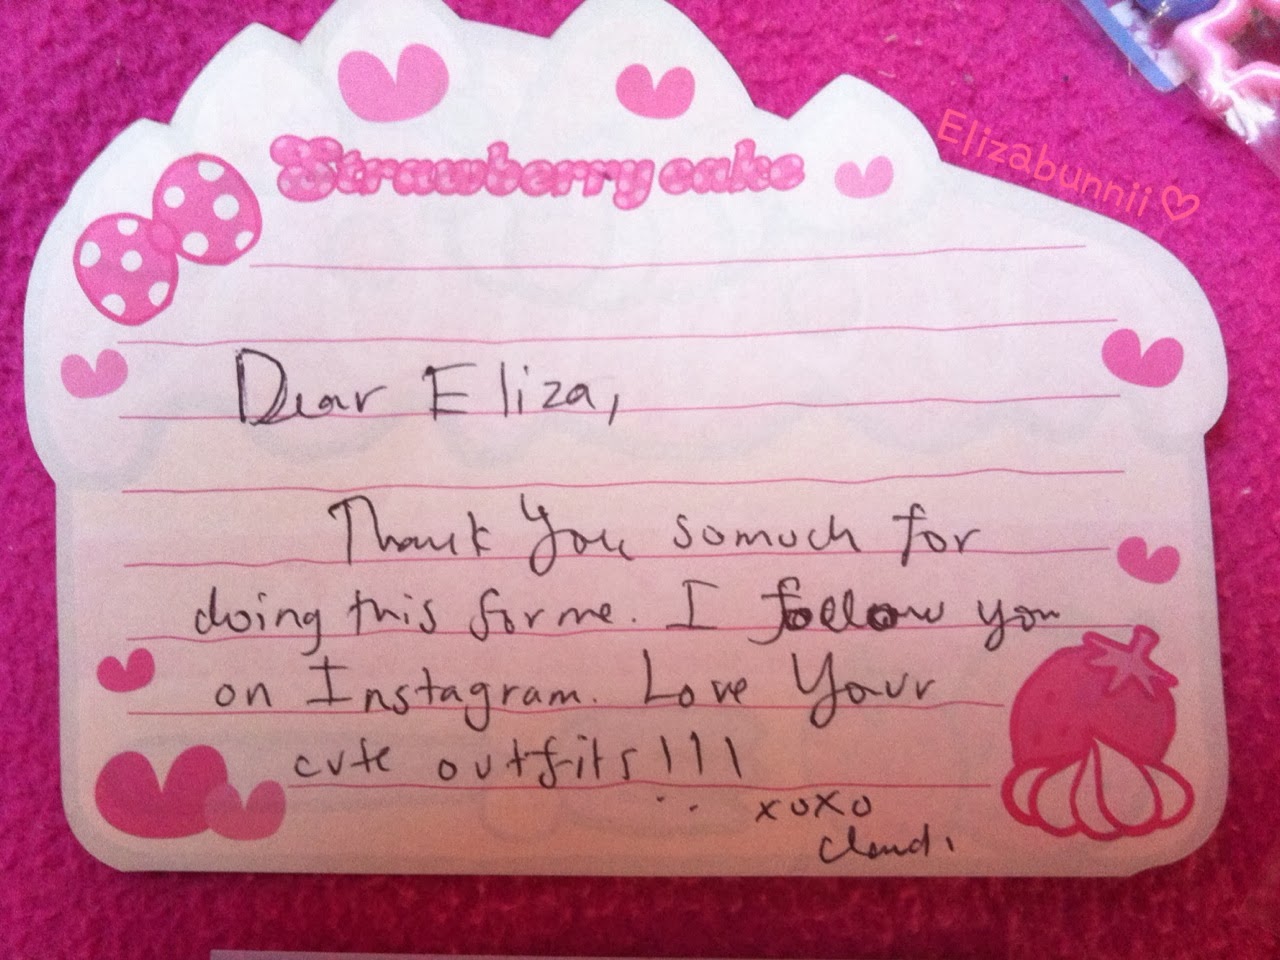 Strawberry cake
Elizabunnii♡
Dear Eliza,
Thank You somuch for
doing this for me. I follow you
on Instagram. Love Your
cute outfits!!!
xoxo
Claudi